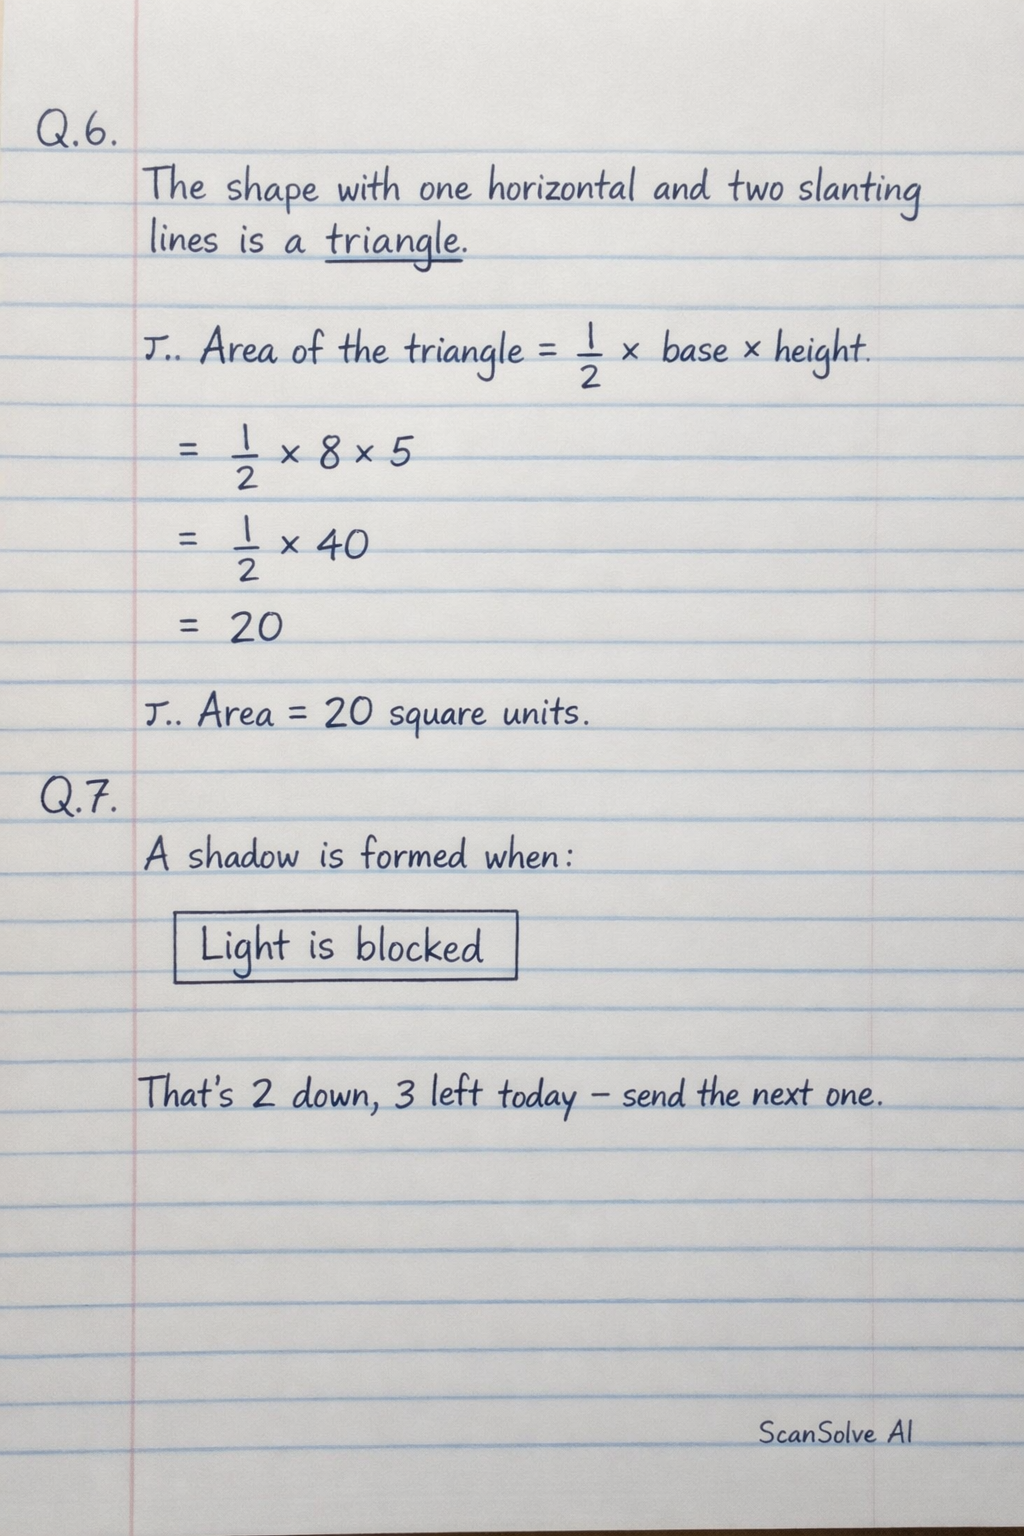 Q.6.
The shape with one horizontal and two slanting
lines is a triangle.
J.. Area of the triangle = 1/2 × base × height.
= 1/2 × 8 × 5
= 1/2 × 40
= 20
J.. Area = 20 square units.
Q.7.
A shadow is formed when:
Light is blocked
That's 2 down, 3 left today – send the next one.
ScanSolve AI